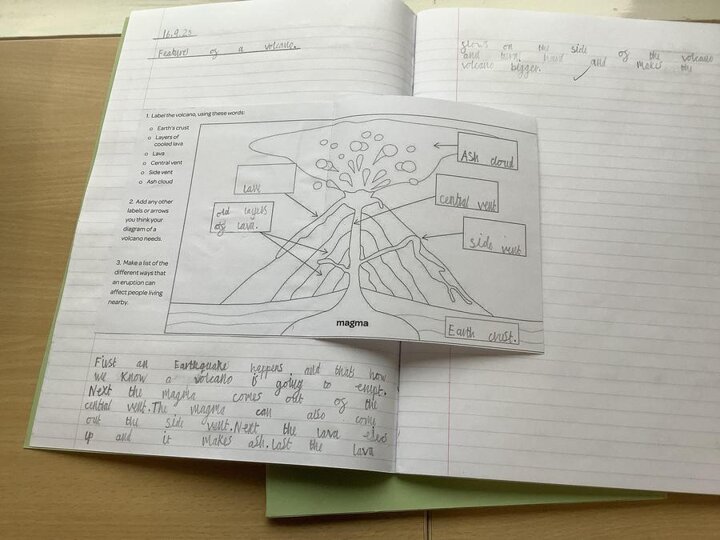 16.9.25
Features of a volcano.
1. Label the volcano, using these words:
Earth's crust
Layers of
cooled lava
Lava
Central vent
Side vent
Ash cloud
2. Add any other
labels or arrows
you think your
diagram of a
volcano needs.
3. Make a list of the
different ways that
an eruption can
affect people living
nearby.
Ash cloud
lava
central vent
old layers
of lava.
side vent
magma
Earth crust.
First an Earthquake happens, and thats how
we know a volcano is going to erupt.
Next the magma comes out of the
central vent. The magma can also come
out the side vent. Next the lava
up and it makes ash. Last the lava
flows on the side of the volcano
and turns hard and makes the
volcano bigger.